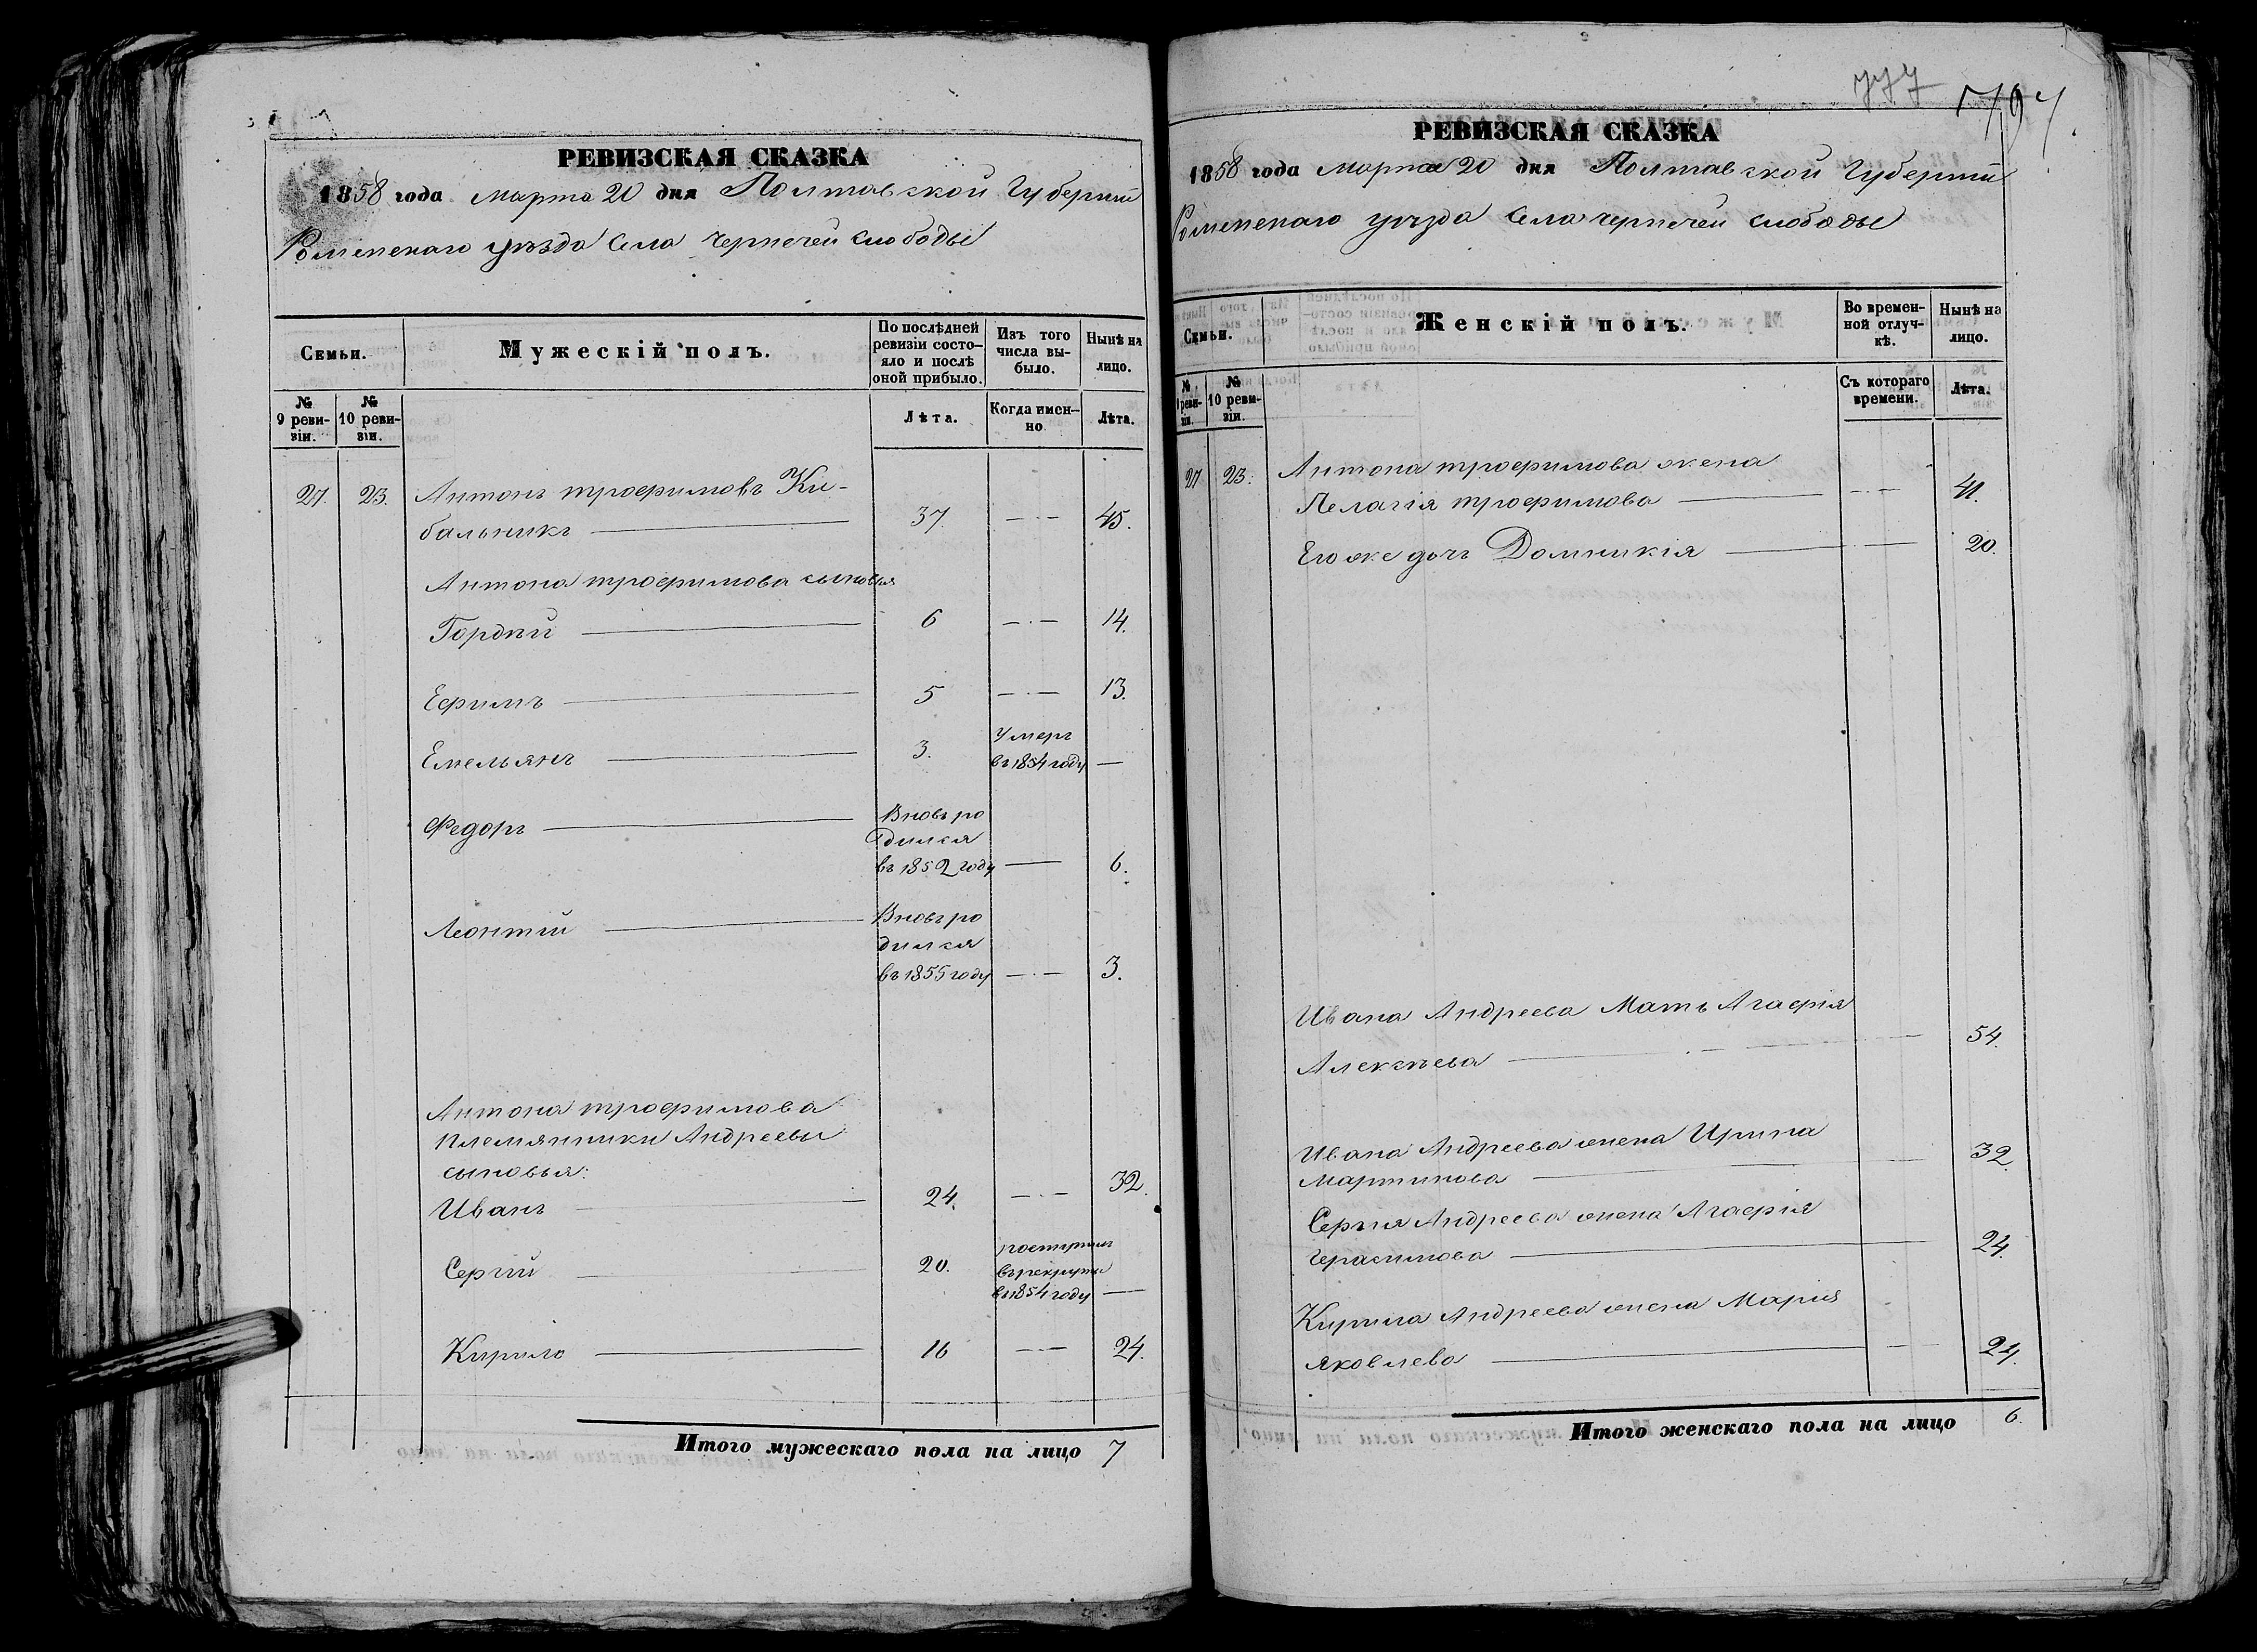 РЕВИЗСКАЯ СКАЗКА
1858 года Марта 20 дня Полтавской Губерніи
Роменскаго уѣзда Села Чернечей Слободы
Семьи.
Мужескій полъ.
По послѣдней ревизіи состояло и послѣ оной прибыло.
Изъ того числа выбыло.
Нынѣ на лицо.
№ 9 ревизіи.
№ 10 ревизіи.
Лѣта.
Когда именно
Лѣта.
27. 23. Антонъ трофимовъ Ки-
бальникъ 37. 45.
Антона трофимова сыновья
Гордѣй 6 14.
Ефимъ 5 13.
Емельянъ 3. Умеръ
въ 1854 году
Федоръ Вновь ро
дился
въ 1852 году 6.
Леонтій Вновь ро
дился
въ 1855 году 3.
Антона трофимова
племянники Андреевы
сыновья:
Иванъ 24. 32.
Сергій 20.
въ рекруты
въ 1854 году
Кирило 16 24.
Итого мужескаго пола на лицо 7
777
797
РЕВИЗСКАЯ СКАЗКА
1858 года Марта 20 дня Полтавской Губерніи
Роменскаго уѣзда Села Чернечей слободы
Семьи.
Женскій полъ.
Во временной отлучкѣ.
Нынѣ на лицо.
№ 9 ревизіи.
№ 10 ревизіи.
Съ котораго времени.
Лѣта.
27 23. Антона трофимова жена
Пелагія трофимова 41.
Его же дочь Домникія 20.
Ивана Андреева Мать Агафія
Алексѣева 54.
Ивана Андреева жена Ирина
Мартинова 32.
Сергія Андреева жена Агафія
Герасимова 24.
Кирила Андреева жена Марія
Яковлева 24.
Итого женскаго пола на лицо 6.